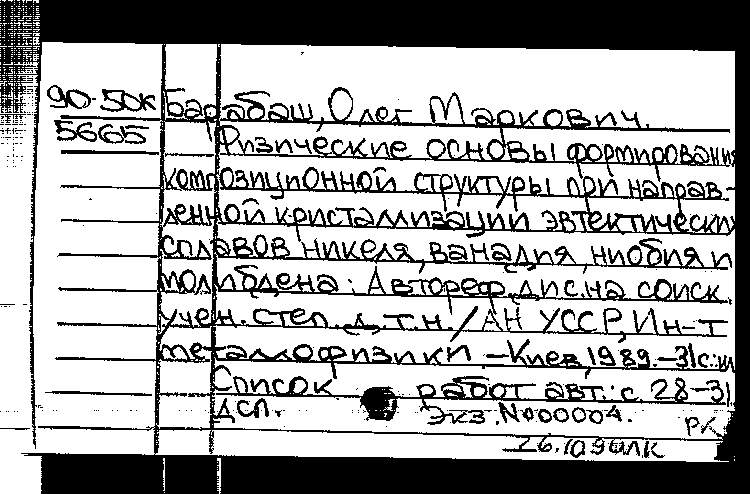 90-50к Барабаш, Олег Маркович.
5665 Физические основы формирования
композиционной структуры при направ-
ленной кристаллизации эвтектических
сплавов никеля, ванадия, ниобия и
молибдена: Автореф. дис. на соиск.
учен. степ. д.т.н. / АН УССР, Ин-т
металлофизики. - Киев, 1989. - 31с.: ил
Список работ авт.: с. 28-31
ДСП. Экз. №00004. РК
26.10.90